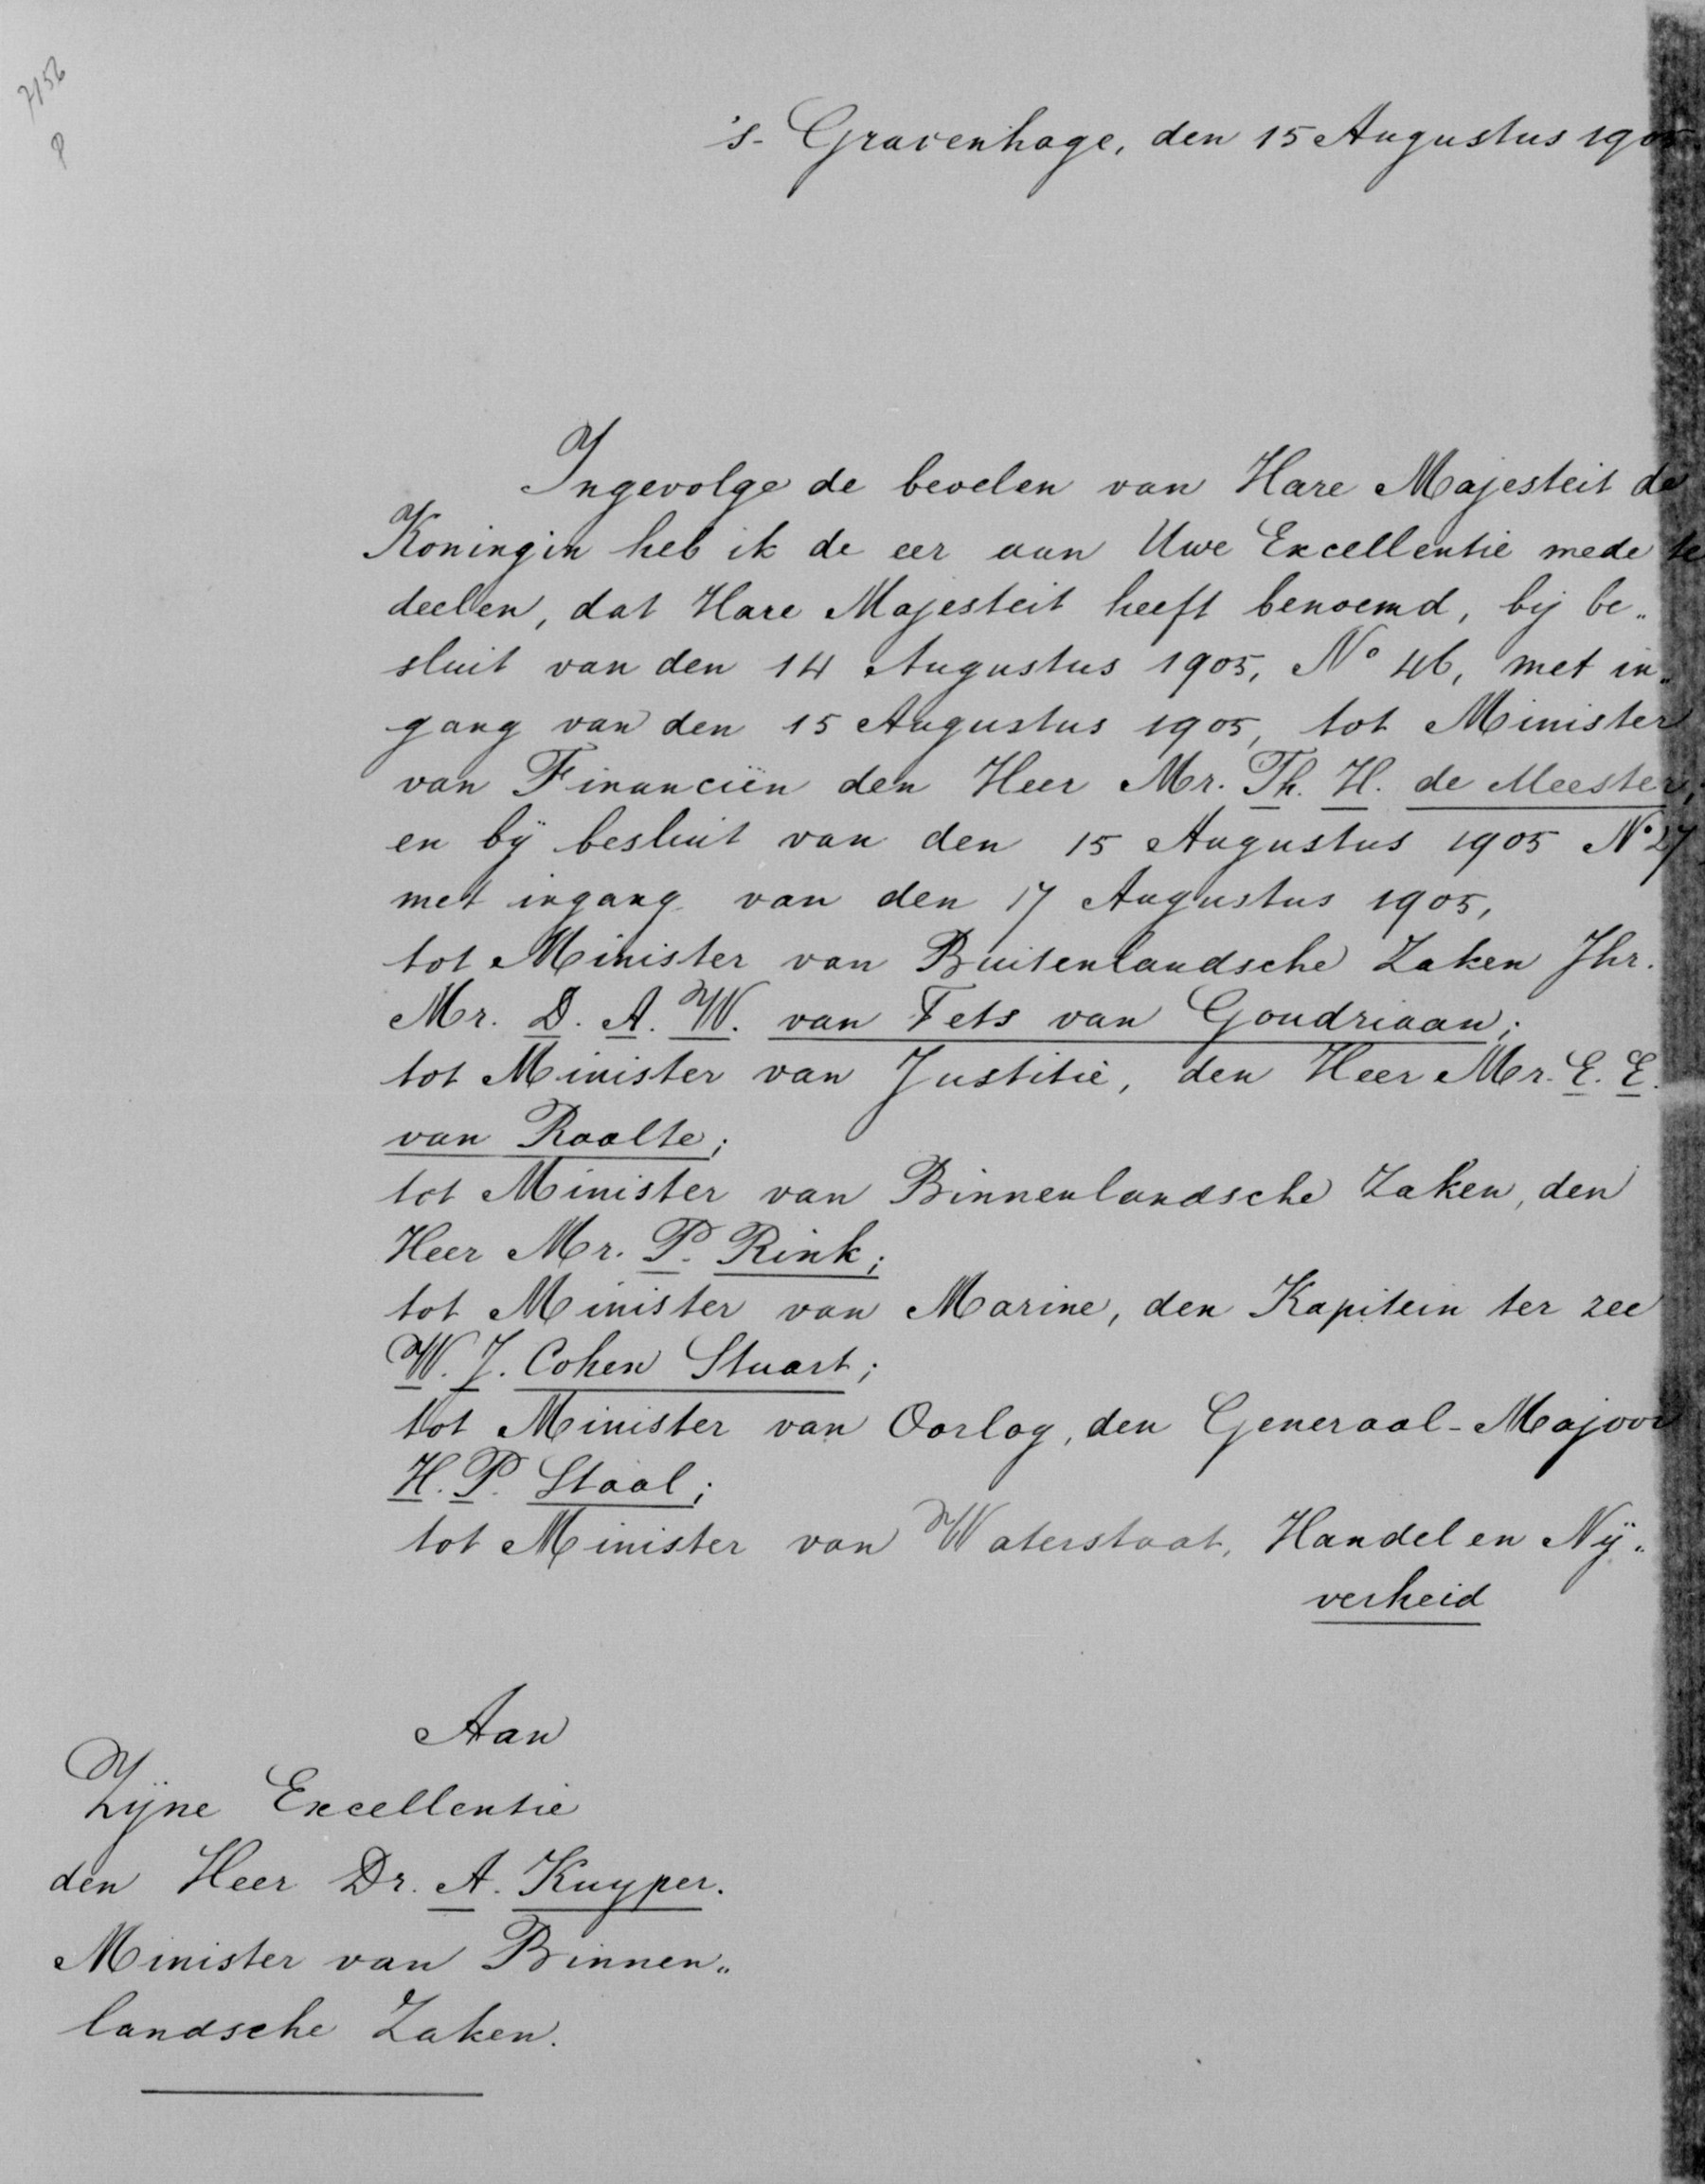 7156
P
's-Gravenhage, den 15 Augustus 1905
Ingevolge de bevelen van Hare Majesteit de
Koningin heb ik de eer aan Uwe Excellentie mede te
deelen, dat Hare Majesteit heeft benoemd, bij be„
sluit van den 14 Augustus 1905, No 46, met in„
gang van den 15 Augustus 1905, tot Minister
van Financiën den Heer Mr. Th. H. de Meester;
en bij besluit van den 15 Augustus 1905 No 27
met ingang van den 17 Augustus 1905,
tot Minister van Buitenlandsche Zaken Jhr.
Mr. D. A. W. van Tets van Goudriaan;
tot Minister van Justitie, den Heer Mr. E. E.
van Raalte;
tot Minister van Binnenlandsche Zaken, den
Heer Mr. P. Rink;
tot Minister van Marine, den Kapitein ter zee
W. J. Cohen Stuart;
tot Minister van Oorlog, den Generaal-Majoor
H. P. Staal;
tot Minister van Waterstaat, Handel en Nij„
verheid
Aan
Zijne Excellentie
den Heer Dr. A. Kuyper.
Minister van Binnen„
landsche Zaken.